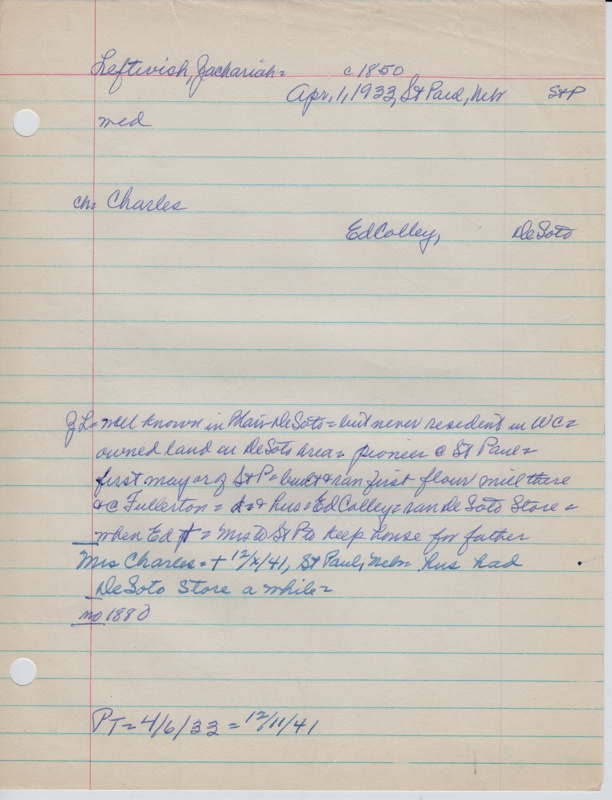 Leftwich, Zachariah = c1850
Apr, 1, 1933, St Paul, Nebr St P
med
ch = Charles
Ed Colley, DeSoto
Z L = well known in Blair - DeSoto = but never resident in WC =
owned land in DeSoto area = pioneer @ St Paul =
first mayor of St P = built & ran first flour mill there
& @ Fullerton = d & hus = Ed Colley = ran DeSoto Store =
when Ed = Mrs to St P to keep house for father
Mrs Charles = + 12/x/41, St Paul, Nebr = hus had
DeSoto Store a while =
no 1880
PT = 4/6/33 = 12/11/41